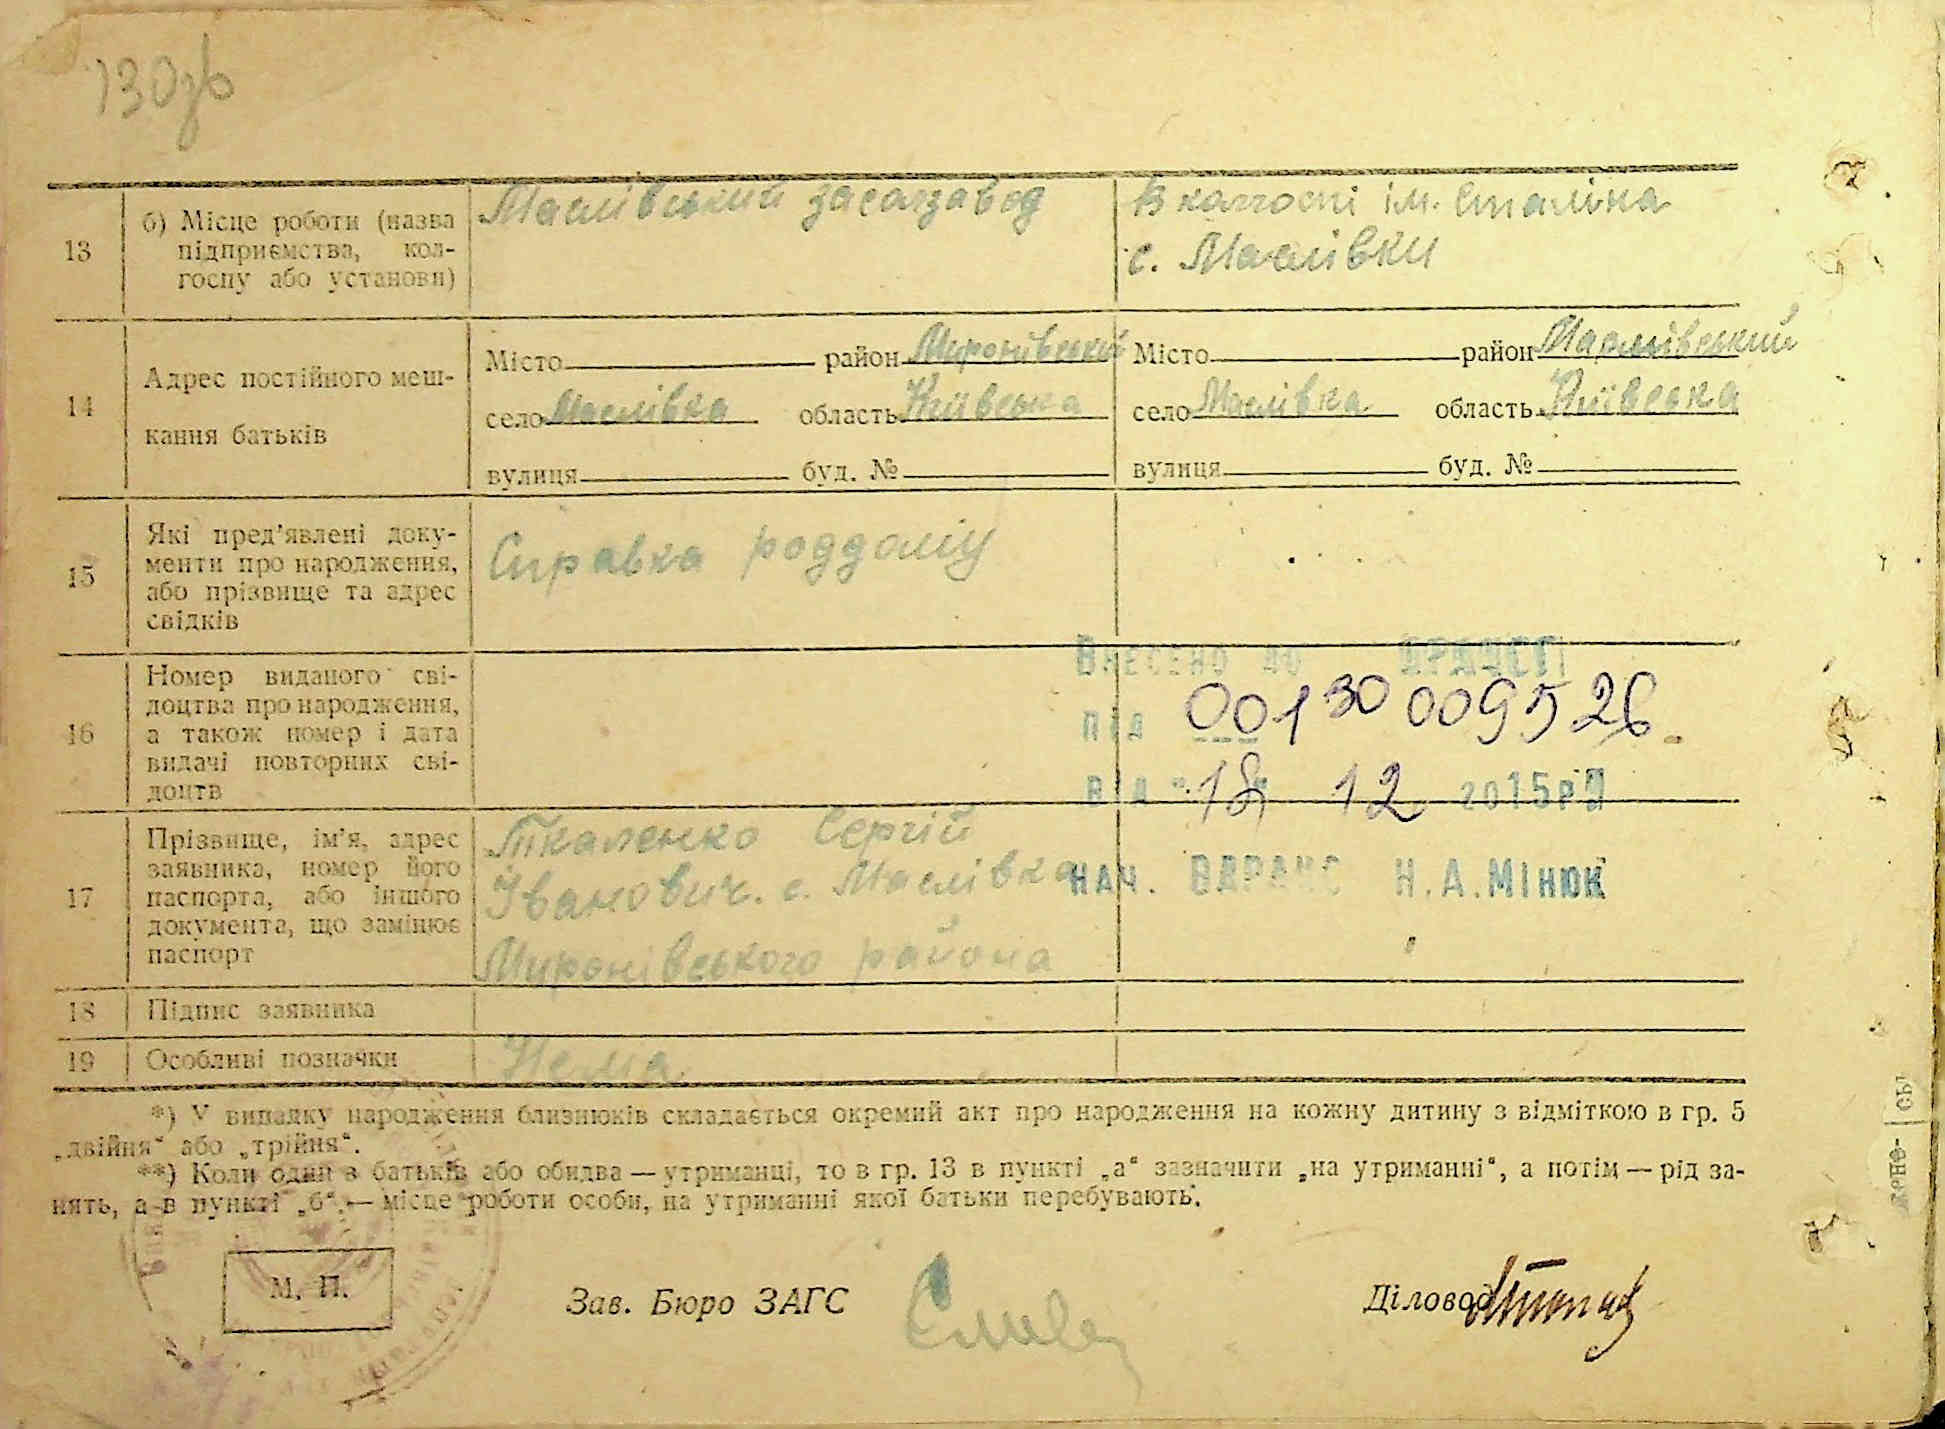 130зв
13 б) Місце роботи (назва підприємства, колгоспу або установи)
Маслівський
В колгоспі ім. Сталіна
с. Маслівки
14 Адрес постійного мешкання батьків
Місто район Миронівський Місто район
село Маслівка область Київська село Маслівка область Київська
вулиця буд. № вулиця буд. №
15 Які пред'явлені документи про народження, або прізвище та адрес свідків
Справка роддому
16 Номер виданого свідоцтва про народження, а також номер і дата видачі повторних свідоцтв
Внесено до ДРАЦСГ
під 00130009526
від 18 12 2015р
17 Прізвище, ім'я, адрес заявника, номер його паспорта, або іншого документа, що замінює паспорт
Ткаленко Сергій
Іванович. с. Маслівка
Миронівського района
нач. ВДРАЦС Н.А.Мінюк
18 Підпис заявника
19 Особливі позначки Нема.
*) У випадку народження близнюків складається окремий акт про народження на кожну дитину з відміткою в гр. 5
„двійня“ або „трійня“.
**) Коли один з батьків або обидва — утриманці, то в гр. 13 в пункті „а“ зазначити „на утриманні“, а потім — рід за-
нять, а в пункті „б“ — місце роботи особи, на утриманні якої батьки перебувають.
М. П. Зав. Бюро ЗАГС Діловод